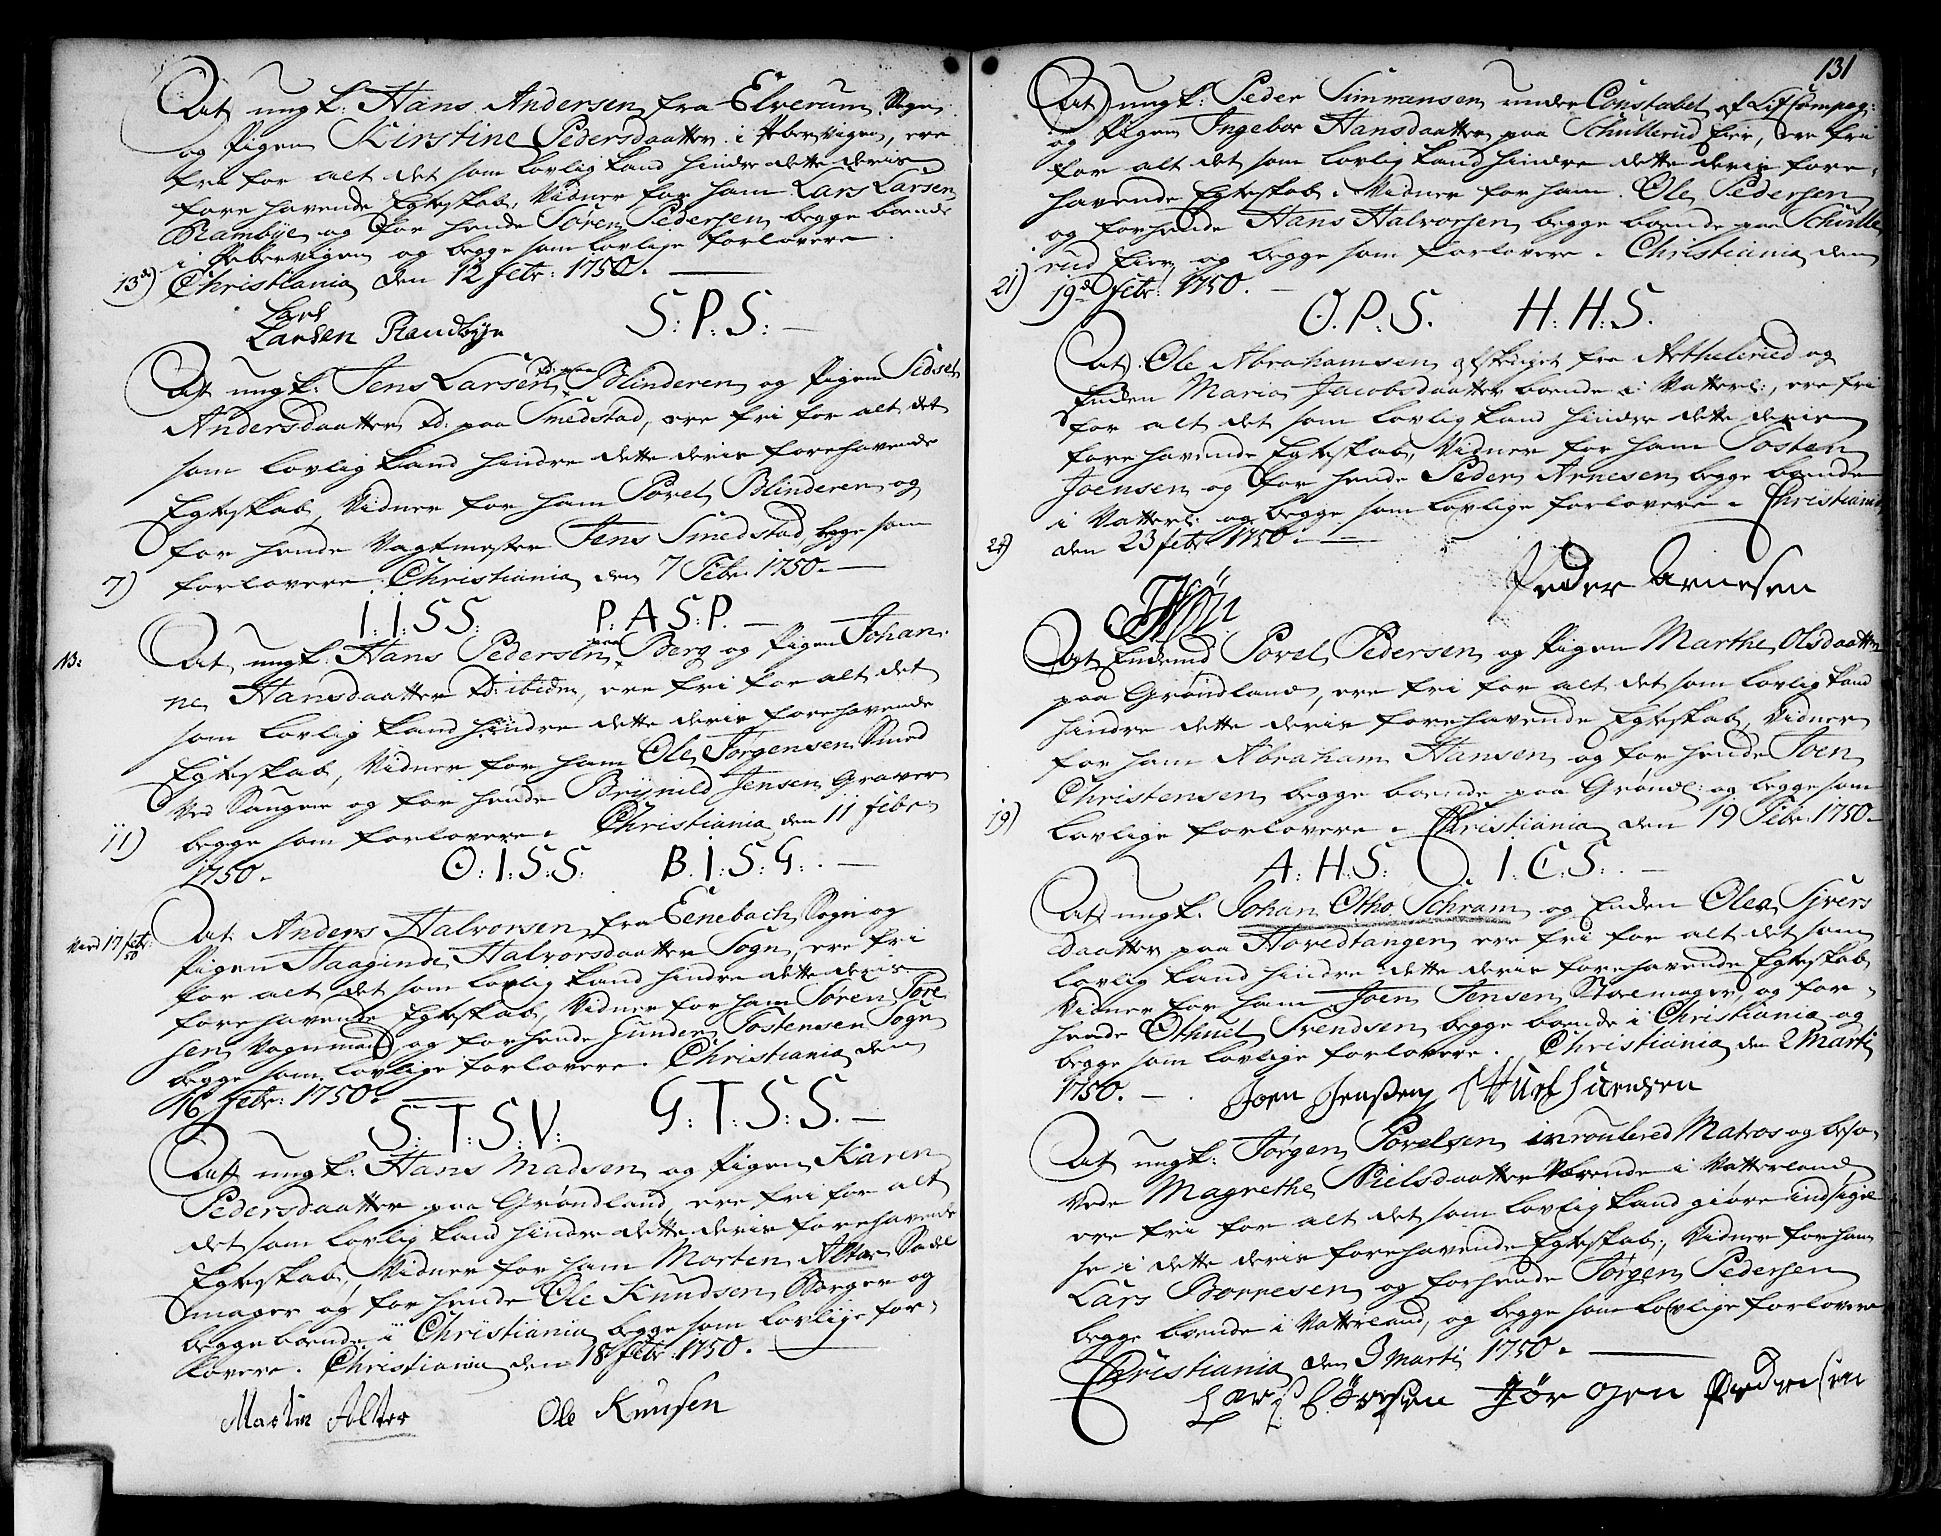 At ungk: Hans Andersen fra Elverum Sogn
og Pigen Kirstine Pedersdaatter i Pebervigen, ere
frie for alt det som lovlig kand hindre dette deris
forehavende Egteskab, Vidner for ham Lars Larsen
Rambye og for hende Sören Pedersen begge boende
i Pebervigen og begge som lovlige forlovere.
13d) Christiania den 12 febr: 1750.
Lars
Larsen Randbye S: P: S:
At ungk: Jens Larsen Tn: paa Blinderen og Pigen Sidsel
Andersdaatter Tn: paa Smedstad, ere fri for alt det
som lovlig kand hindre dette deris forehavende
Egteskab, Vidner for ham Povel Blinderen og
for hende Vagtmester Jens Smedstad, begge som
7) forlovere. Christiania den 7 Febr: 1750.
I: I: S S: P: A S: P.
13: At ungk: Hans Pedersen paa Berg og Pigen Johan-
ne Hansdaatter Tn: ibidm, ere fri for alt det
som lovlig kand hindre dette deris forehavende
Egteskab, Vidner for ham Ole Jörgensen Smed
ved Saugene og for hende Brynild Jensen Graver
11) begge som forlovere. Christiania den 11 febr:
1750. O: I: S: S: B. I: S: G:
Viede 17 febr: 50 At Anders Halvorsen fra Eenebach Sogn og
Pigen Haaginde Halvorsdaatter Sogn, ere fri
for alt det som lovlig kand hindre dette deris
forehavende Egteskab, Vidner for ham Sören Tore
sen Vognmand og for hende Gunder Tostensen Sogn
begge som lovlige forlovere. Christiania den
16 febr: 1750. S: T: S: V: G: T: S: S.
At ungk: Hans Madsen og Pigen Karen
Pedersdaatter paa Gröndland, ere fri for alt
det som lovlig kand hindre dette deris forehavende
Egteskab, Vidner for ham Morten Alter Sadel
mager og for hende Ole Knudsen Borger og
begge boende i Christiania begge som lovlige for-
lovere. Christiania den 18 febr: 1750.
Martin Alter Ole Knusen
131
At ungk: Peder Simmensen under Constabel af Lifcompag:
og Pigen Ingebor Hansdaatter paa Schullerud Eier, ere fri
for alt det som lovlig kand hindre dette deris fore-
havende Egteskab. Vidner for ham Ole Pedersen
og for hende Hans Halvorsen begge boende paa Schulle
rud Eier og begge som forlovere. Christiania den
21) 19d febr: 1750.
O. P. S. H: H: S.
At Ole Abrahamsen afskediget fra Artheleried og
Enden Maria Jacobsdaatter boende i Vatterl:, ere fri
for alt det som lovlig kand hindre dette deris
forehavende Egteskab, Vidner for ham Tosten
Joensen og for hende Peder Arnesen begge boende
i Vatterl: og begge som lovlige forlovere. Christiania
24) den 23 febr: 1750.
Peder Arnesen
At Enkemd Povel Pedersen og Pigen Marthe Olsdaatter
paa Gröndland, ere fri for alt det som lovlig kand
hindre dette deris forehavende Egteskab, Vidner
for ham Abraham Hansen og for hende Joen
Christensen begge boende paa Gröndl: og begge som
19) lovlige forlovere. Christiania den 19 Febr: 1750.
A: H: S: I: C: S:
At ungk: Johan Otho Schram og Enden Olea Sjvers
daatter paa Hovedtangen ere fri for alt det som
lovlig kand hindre dette deris forehavende Egteskab
Vidner for ham Joen Jensen Stolemager, og for
hende Othuel Svendsen begge boende i Christiania og
begge som lovlige forlovere. Christiania den 2 Marti
1750. Joen Jenssen
At ungk: Jörgen Povelsen inroulered Matros og beso-
vede Magrethe Nielsdaatter boende i Vatterland,
ere fri for alt det som lovlig kand giöre indsigel
se i dette deris forehavende Egteskab, Vidner for ham
Lars Borresen og for hende Jörgen Pedersen
begge boende i Vatterland, og begge som lovlige forlovere
Christiania den 3 Marti 1750.
Lars Börsen Jör gen Pedersen